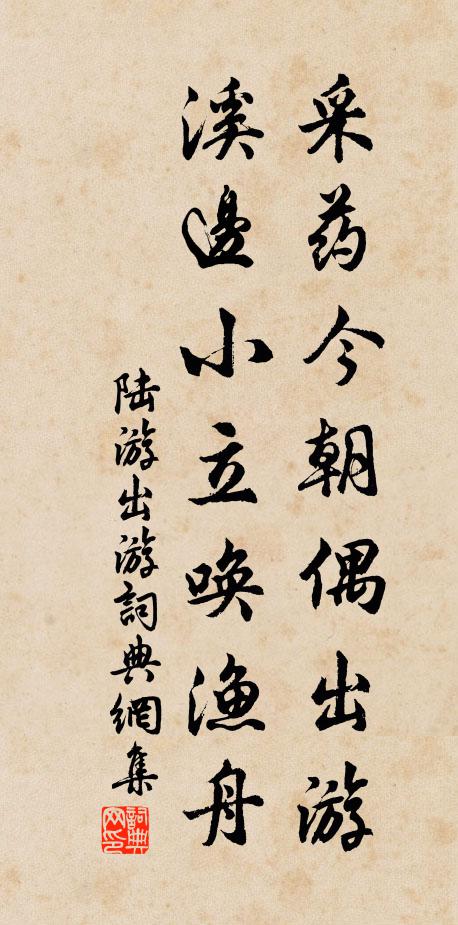 采药今朝偶出游
溪邊小立唤漁舟
陆游出游詞典網集
詞典网印